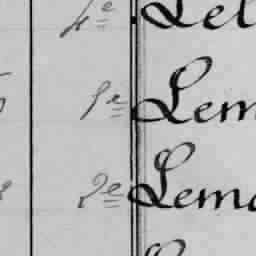 4e Lel
1e Lem
2e Lema